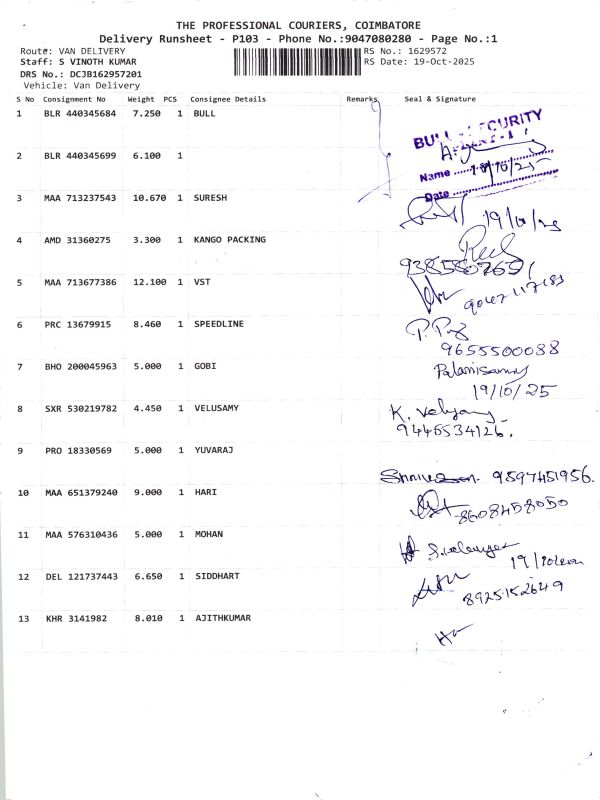 THE PROFESSIONAL COURIERS, COIMBATORE
Delivery Runsheet - P103 - Phone No.:9047080280 - Page No.:1
Route: VAN DELIVERY RS No.: 1629572
Staff: S VINOTH KUMAR RS Date: 19-Oct-2025
DRS No.: DCJB162957201
Vehicle: Van Delivery
S No Consignment No Weight PCS Consignee Details Remarks Seal & Signature
1 BLR 440345684 7.250 1 BULL
SECURITY
2 BLR 440345699 6.100 1
Name
Date
3 MAA 713237543 10.670 1 SURESH
4 AMD 31360275 3.300 1 KANGO PACKING
5 MAA 713677386 12.100 1 VST
6 PRC 13679915 8.460 1 SPEEDLINE
9655500088
7 BHO 200045963 5.000 1 GOBI
Palanisamy
19/10/25
8 SXR 530219782 4.450 1 VELUSAMY
9446534126.
9 PRO 18330569 5.000 1 YUVARAJ
9597451956.
10 MAA 651379240 9.000 1 HARI
8608458050
11 MAA 576310436 5.000 1 MOHAN
12 DEL 121737443 6.650 1 SIDDHART
8925152649
13 KHR 3141982 8.010 1 AJITHKUMAR